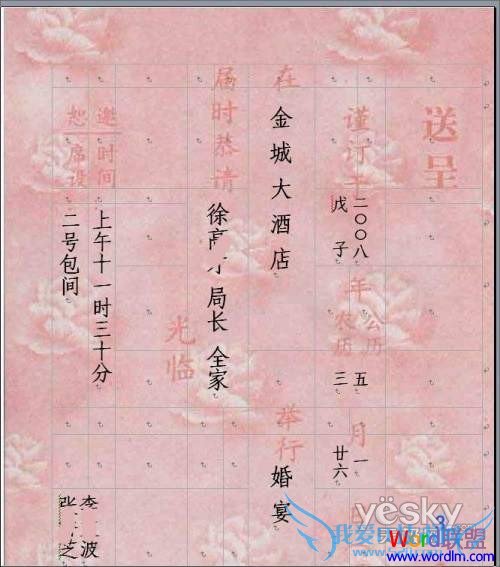 送呈
谨订于
二〇〇八年公历五月一
戊子农历三廿六
在金城大酒店举行婚宴
届时恭请
徐 局长全家
光临
邀时间上午十一时三十分
恕席设二号包间
李 波
之
yësky
Word联盟
www.wordlm.com